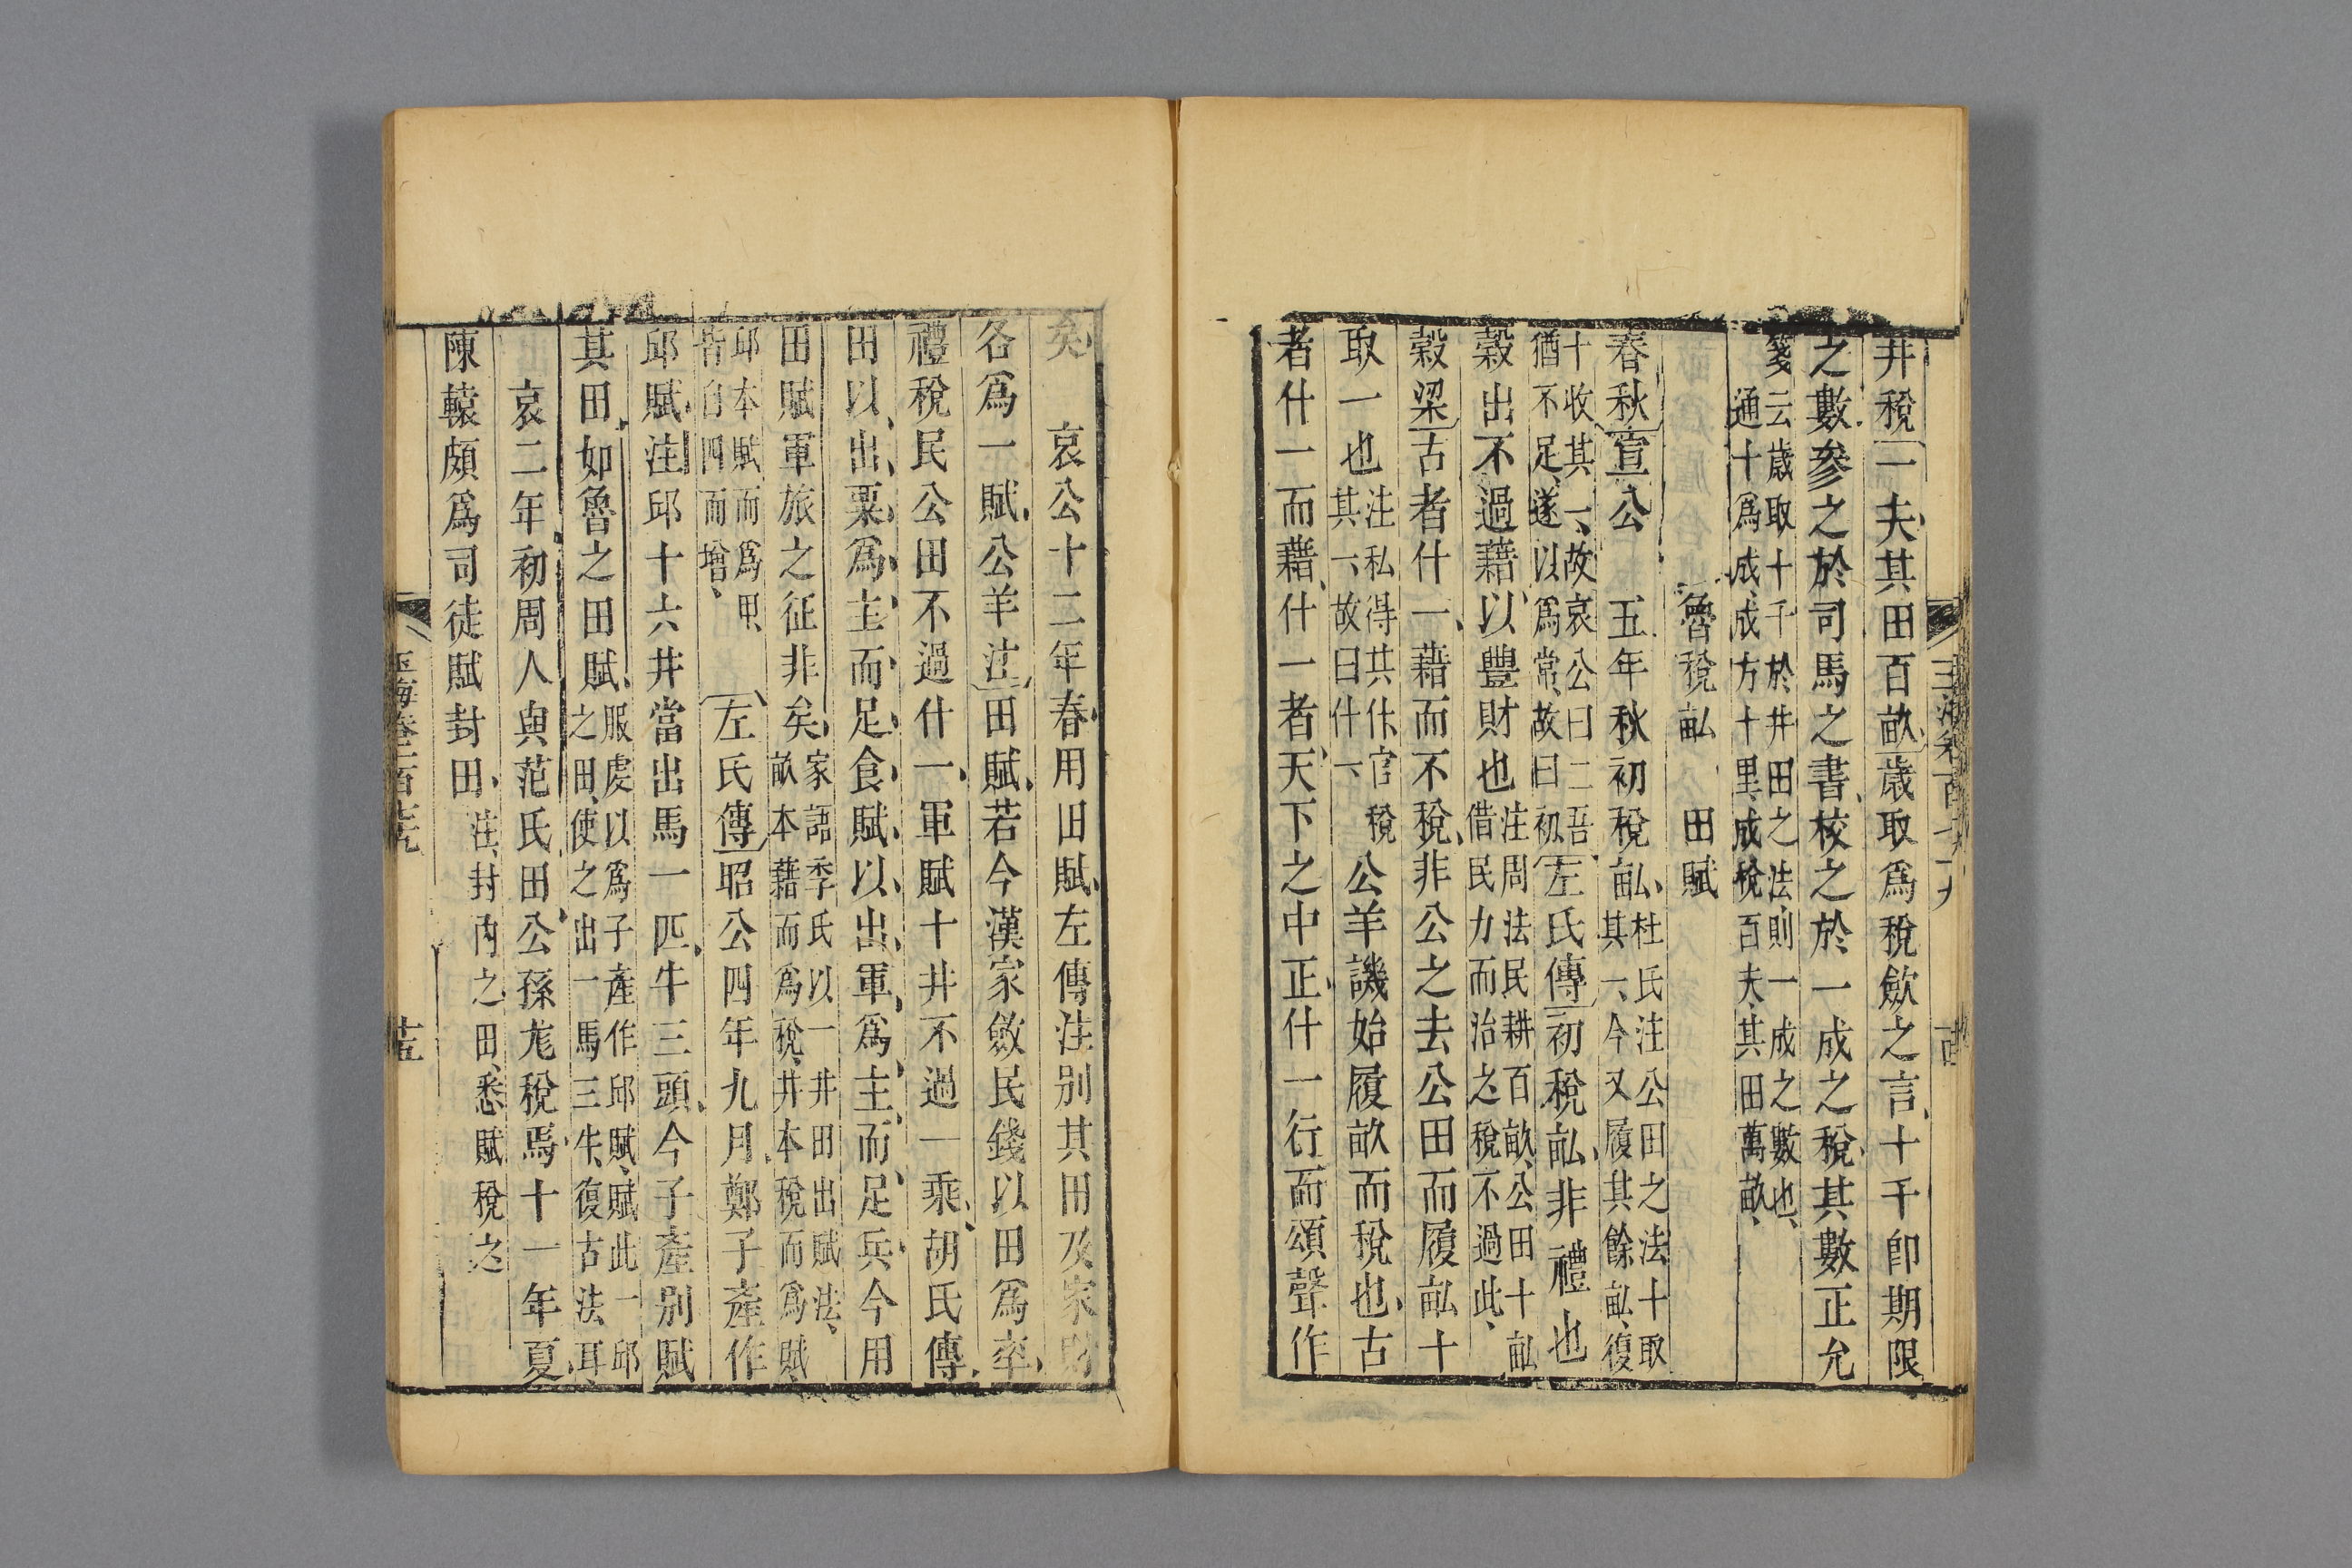 井稅一夫其田百畝歲取爲稅斂之言十千卽期限
之數參之於司馬之書校之於一成之稅其數正允
箋云歲取十千於井田之法則一成之數也
通十爲成成方十里成稅百夫其田萬畝
魯稅畝 田賦
春秋宣公 五年秋初稅畝杜氏注公田之法十取
其一今又履其餘畝復
十收其一故哀公曰二吾
猶不足遂以爲常故曰初左氏傳初稅畝非禮也
穀出不過藉以豐財也注周法民耕百畝公田十畝
借民力而治之稅不過此
穀梁古者什一藉而不稅非公之去公田而履畝十
取一也注私得其什官稅
其一故曰什一公羊譏始履畝而稅也古
者什一而藉什一者天下之中正什一行而頌聲作
矣 哀公十二年春用田賦左傳注別其田及家財
各爲一賦公羊注田賦若今漢家斂民錢以田爲率
禮稅民公田不過什一軍賦十井不過一乘胡氏傳
田以出粟爲主而足食賦以出軍爲主而足兵今用
田賦軍旅之征非矣家語季氏以一井田出賦法
畝本藉而爲稅井本稅而爲賦
邱本賦而爲甲
皆自四而增 左氏傳昭公四年九月鄭子產作
邱賦注邱十六井當出馬一匹牛三頭今子產別賦
其田如魯之田賦服虔以爲子產作邱賦賦此一邱
之田使之出一馬三牛復古法耳
哀二年初周人與范氏田公孫尨稅焉十一年夏
陳轅頗爲司徒賦封田注封內之田悉賦稅之
玉海卷一百七十九